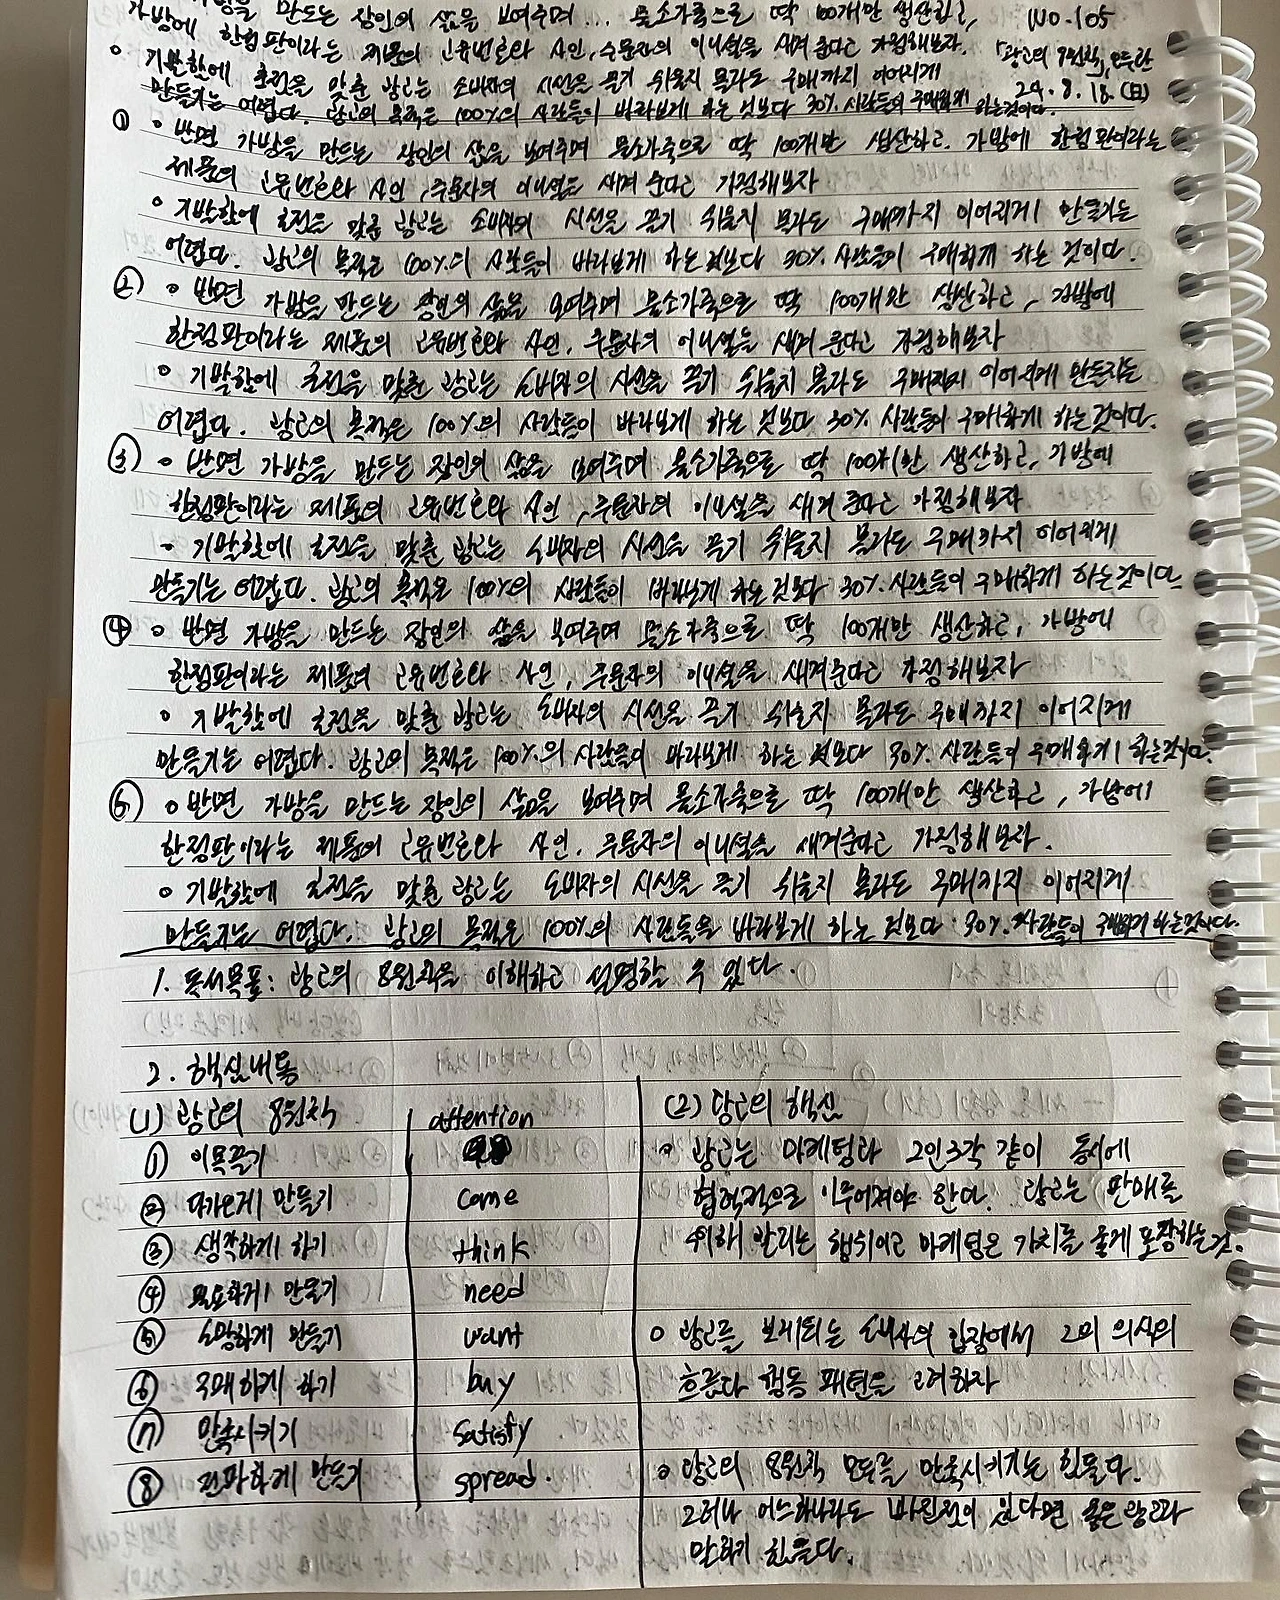 만드는 장인의 삶을 보여주며 물소가죽으로 딱 100개만 생산하고, NO.105
가방에 한정판이라는 제품의 고유번호와 사인, 주문자의 이니셜을 새겨 준다고 가정해보자. 「광고의 8원칙」,
◦ 기발함에 초점을 맞춘 광고는 소비자의 시선을 끌기 쉬울지 몰라도 구매까지 이어지게 24.8.18.(日)
만들기는 어렵다. 광고의 목적은 100%의 사람들이 바라보게 하는 것보다 30% 사람들이 구매하게 하는것이다.
① ◦ 반면 가방을 만드는 장인의 삶을 보여주며 물소가죽으로 딱 100개만 생산하고, 가방에 한정판이라는
제품의 고유번호와 사인, 주문자의 이니셜을 새겨 준다고 가정해보자
◦ 기발함에 초점을 맞춘 광고는 소비자의 시선을 끌기 쉬울지 몰라도 구매까지 이어지게 만들기는
어렵다. 광고의 목적은 100%의 사람들이 바라보게 하는 것보다 30% 사람들이 구매하게 하는 것이다.
② ◦ 반면 가방을 만드는 장인의 삶을 보여주며 물소가죽으로 딱 100개만 생산하고, 가방에
한정판이라는 제품의 고유번호와 사인, 주문자의 이니셜을 새겨 준다고 가정해보자
◦ 기발함에 초점을 맞춘 광고는 소비자의 시선을 끌기 쉬울지 몰라도 구매까지 이어지게 만들기는
어렵다. 광고의 목적은 100%의 사람들이 바라보게 하는 것보다 30% 사람들이 구매하게 하는것이다.
③ ◦ 반면 가방을 만드는 장인의 삶을 보여주며 물소가죽으로 딱 100개만 생산하고, 가방에
한정판이라는 제품의 고유번호와 사인, 주문자의 이니셜을 새겨 준다고 가정해보자
◦ 기발함에 초점을 맞춘 광고는 소비자의 시선을 끌기 쉬울지 몰라도 구매까지 이어지게
만들기는 어렵다. 광고의 목적은 100%의 사람들이 바라보게 하는 것보다 30% 사람들이 구매하게 하는것이다.
④ ◦ 반면 가방을 만드는 장인의 삶을 보여주며 물소가죽으로 딱 100개만 생산하고, 가방에
한정판이라는 제품의 고유번호와 사인, 주문자의 이니셜을 새겨준다고 가정해보자
◦ 기발함에 초점을 맞춘 광고는 소비자의 시선을 끌기 쉬울지 몰라도 구매까지 이어지게
만들기는 어렵다. 광고의 목적은 100%의 사람들이 바라보게 하는 것보다 30% 사람들이 구매하게 하는것이다.
◦ 반면 가방을 만드는 장인의 삶을 보여주며 물소가죽으로 딱 100개만 생산하고, 가방에
한정판이라는 제품의 고유번호와 사인, 주문자의 이니셜을 새겨준다고 가정해보자.
◦ 기발함에 초점을 맞춘 광고는 소비자의 시선을 끌기 쉬울지 몰라도 구매까지 이어지게
만들기는 어렵다. 광고의 목적은 100%의 사람들을 바라보게 하는 것보다 30% 사람들이 구매하게 하는것이다.
1. 독서목표: 광고의 8원칙을 이해하고 설명할 수 있다.
2. 핵심내용
(1) 광고의 8원칙
① 이목끌기 attention
② 다가오게 만들기 come
③ 생각하게 하기 think
④ 필요하게 만들기 need
⑤ 소망하게 만들기 want
⑥ 구매하게 하기 buy
⑦ 만족시키기 satisfy
⑧ 전파하게 만들기 spread.
(2) 광고의 핵심
◦ 광고는 마케팅과 2인3각 같이 동시에
협력적으로 이루어져야 한다. 광고는 판매를
위해 알리는 행위이고 마케팅은 가치를 옳게 포장하는것.
◦ 광고를 보게되는 소비자의 입장에서 그의 의식의
흐름과 행동 패턴을 고려하자
◦ 광고의 8원칙 모두를 만족시키기는 힘들다.
그러나 어느하나라도 빠진것이 있다면 좋은 광고라
말하기 힘들다.